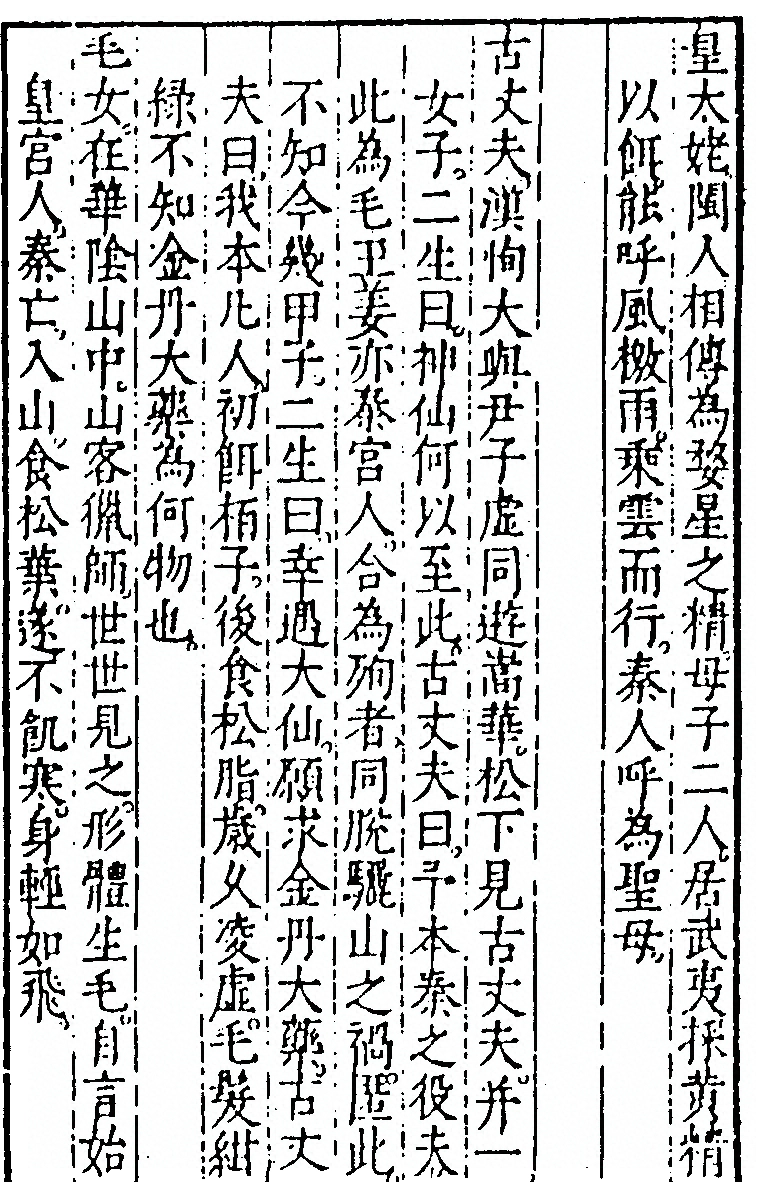 皇太姥。閩人相傳為婺星之精。母子二人。居武夷。採黃精
以餌。能呼風檄雨。乘雲而行。秦人呼為聖母。
古丈夫。漢恂大與尹子虛同遊嵩華。松下見古丈夫。并一
女子。二生曰。神仙何以至此。古丈夫曰。予本秦之役夫
此為毛玉姜亦秦宮人。合為殉者、同脫驪山之禍。匿此
不知今幾甲子。二生曰。幸遇大仙。願求金丹大藥。古丈
夫曰。我本凡人。初餌栢子。後食松脂。歲久凌虛。毛髮紺
綠不知金丹大藥為何物也。
毛女。在華陰山中。山客獵師。世世見之。形體生毛。自言始
皇宮人。秦亡。入山。食松葉。遂不飢寒。身輕如飛。